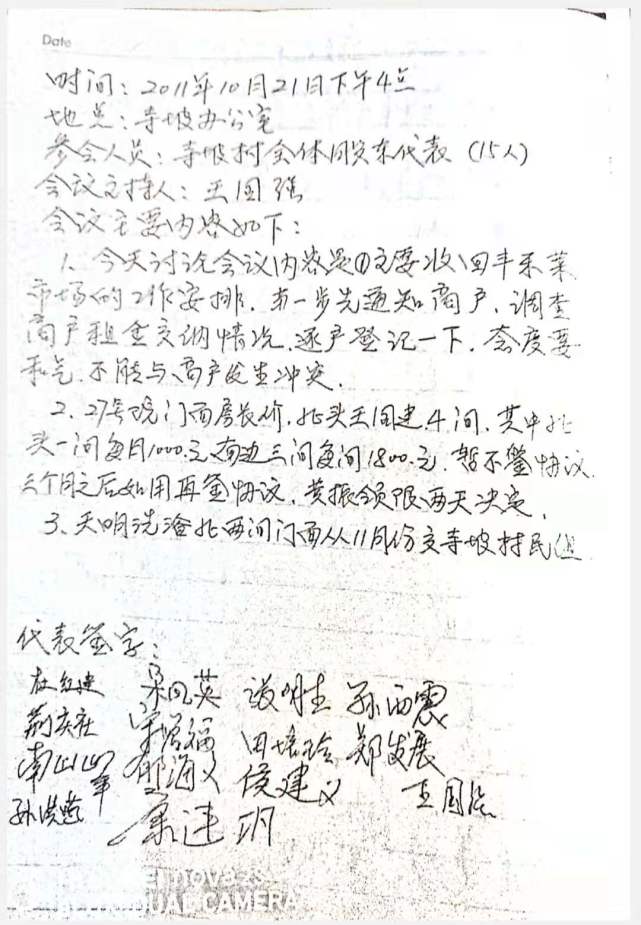 Date
时间：2011年10月21日下午4点
地点：寺坡办公室
参会人员：寺坡村全体股东代表（15人）
会议主持人：王国强
会议主要内容如下：
1、今天讨论会议内容是①主要收回丰禾菜
市场的工作安排，第一步先通知商户，调查
商户租金交纳情况，逐户登记一下，态度要
和气，不能与商户发生冲突。
2、27号院门面房长价，北头王国建4间，其中北
头一间每月1000元，南边三间每间1800元，暂不签协议，
三个月之后如用再签协议，黄振领限两天决定，
3、天明洗浴北两间门面从11月份交寺坡村民组
代表签字：
宋凤英 孙西震
荆庆社 田培玲 郑发展
南山 侯建义 王国强
孙洪燕
DUAL CAMERA